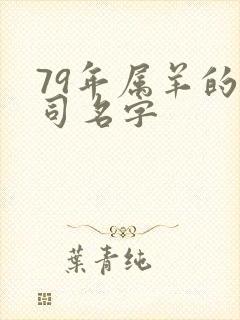 79年属羊的
司名字
葉青纯